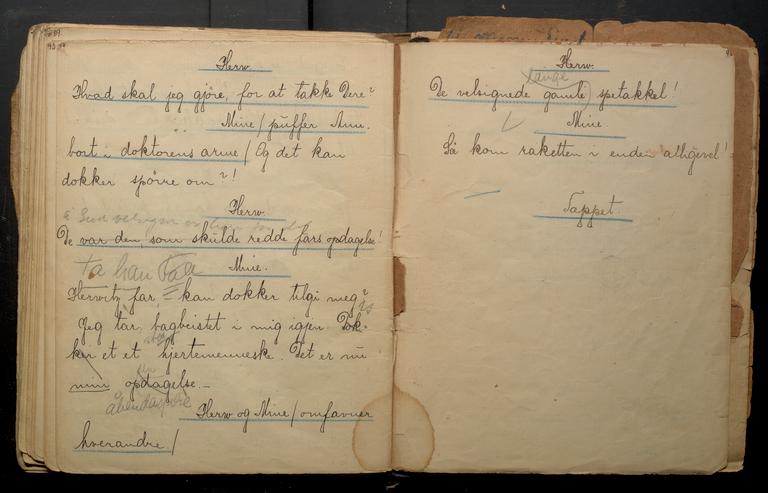 Herw.
Hvad skal jeg gjöre, for at takke Dere?
Mine / puffer Ann.
bort i doktorens arme / Og det kan
dokker spörre om?!
Herw.
De var den, som skulde redde fars opdagelse!
ta han
Mine.
Herwitz far, kan dokker tilgi meg?
Jeg tar bagbeistet i mig igjen. Dok-
ker et et hjertemenneske. Det er nu
min opdagelse. –
Herw og Mine / omfavner
hverandre /
Herw.
lange
De velsignede gamle spetakkel!
Mine.
Så kom raketten i enden allligevel!
Tæppet.